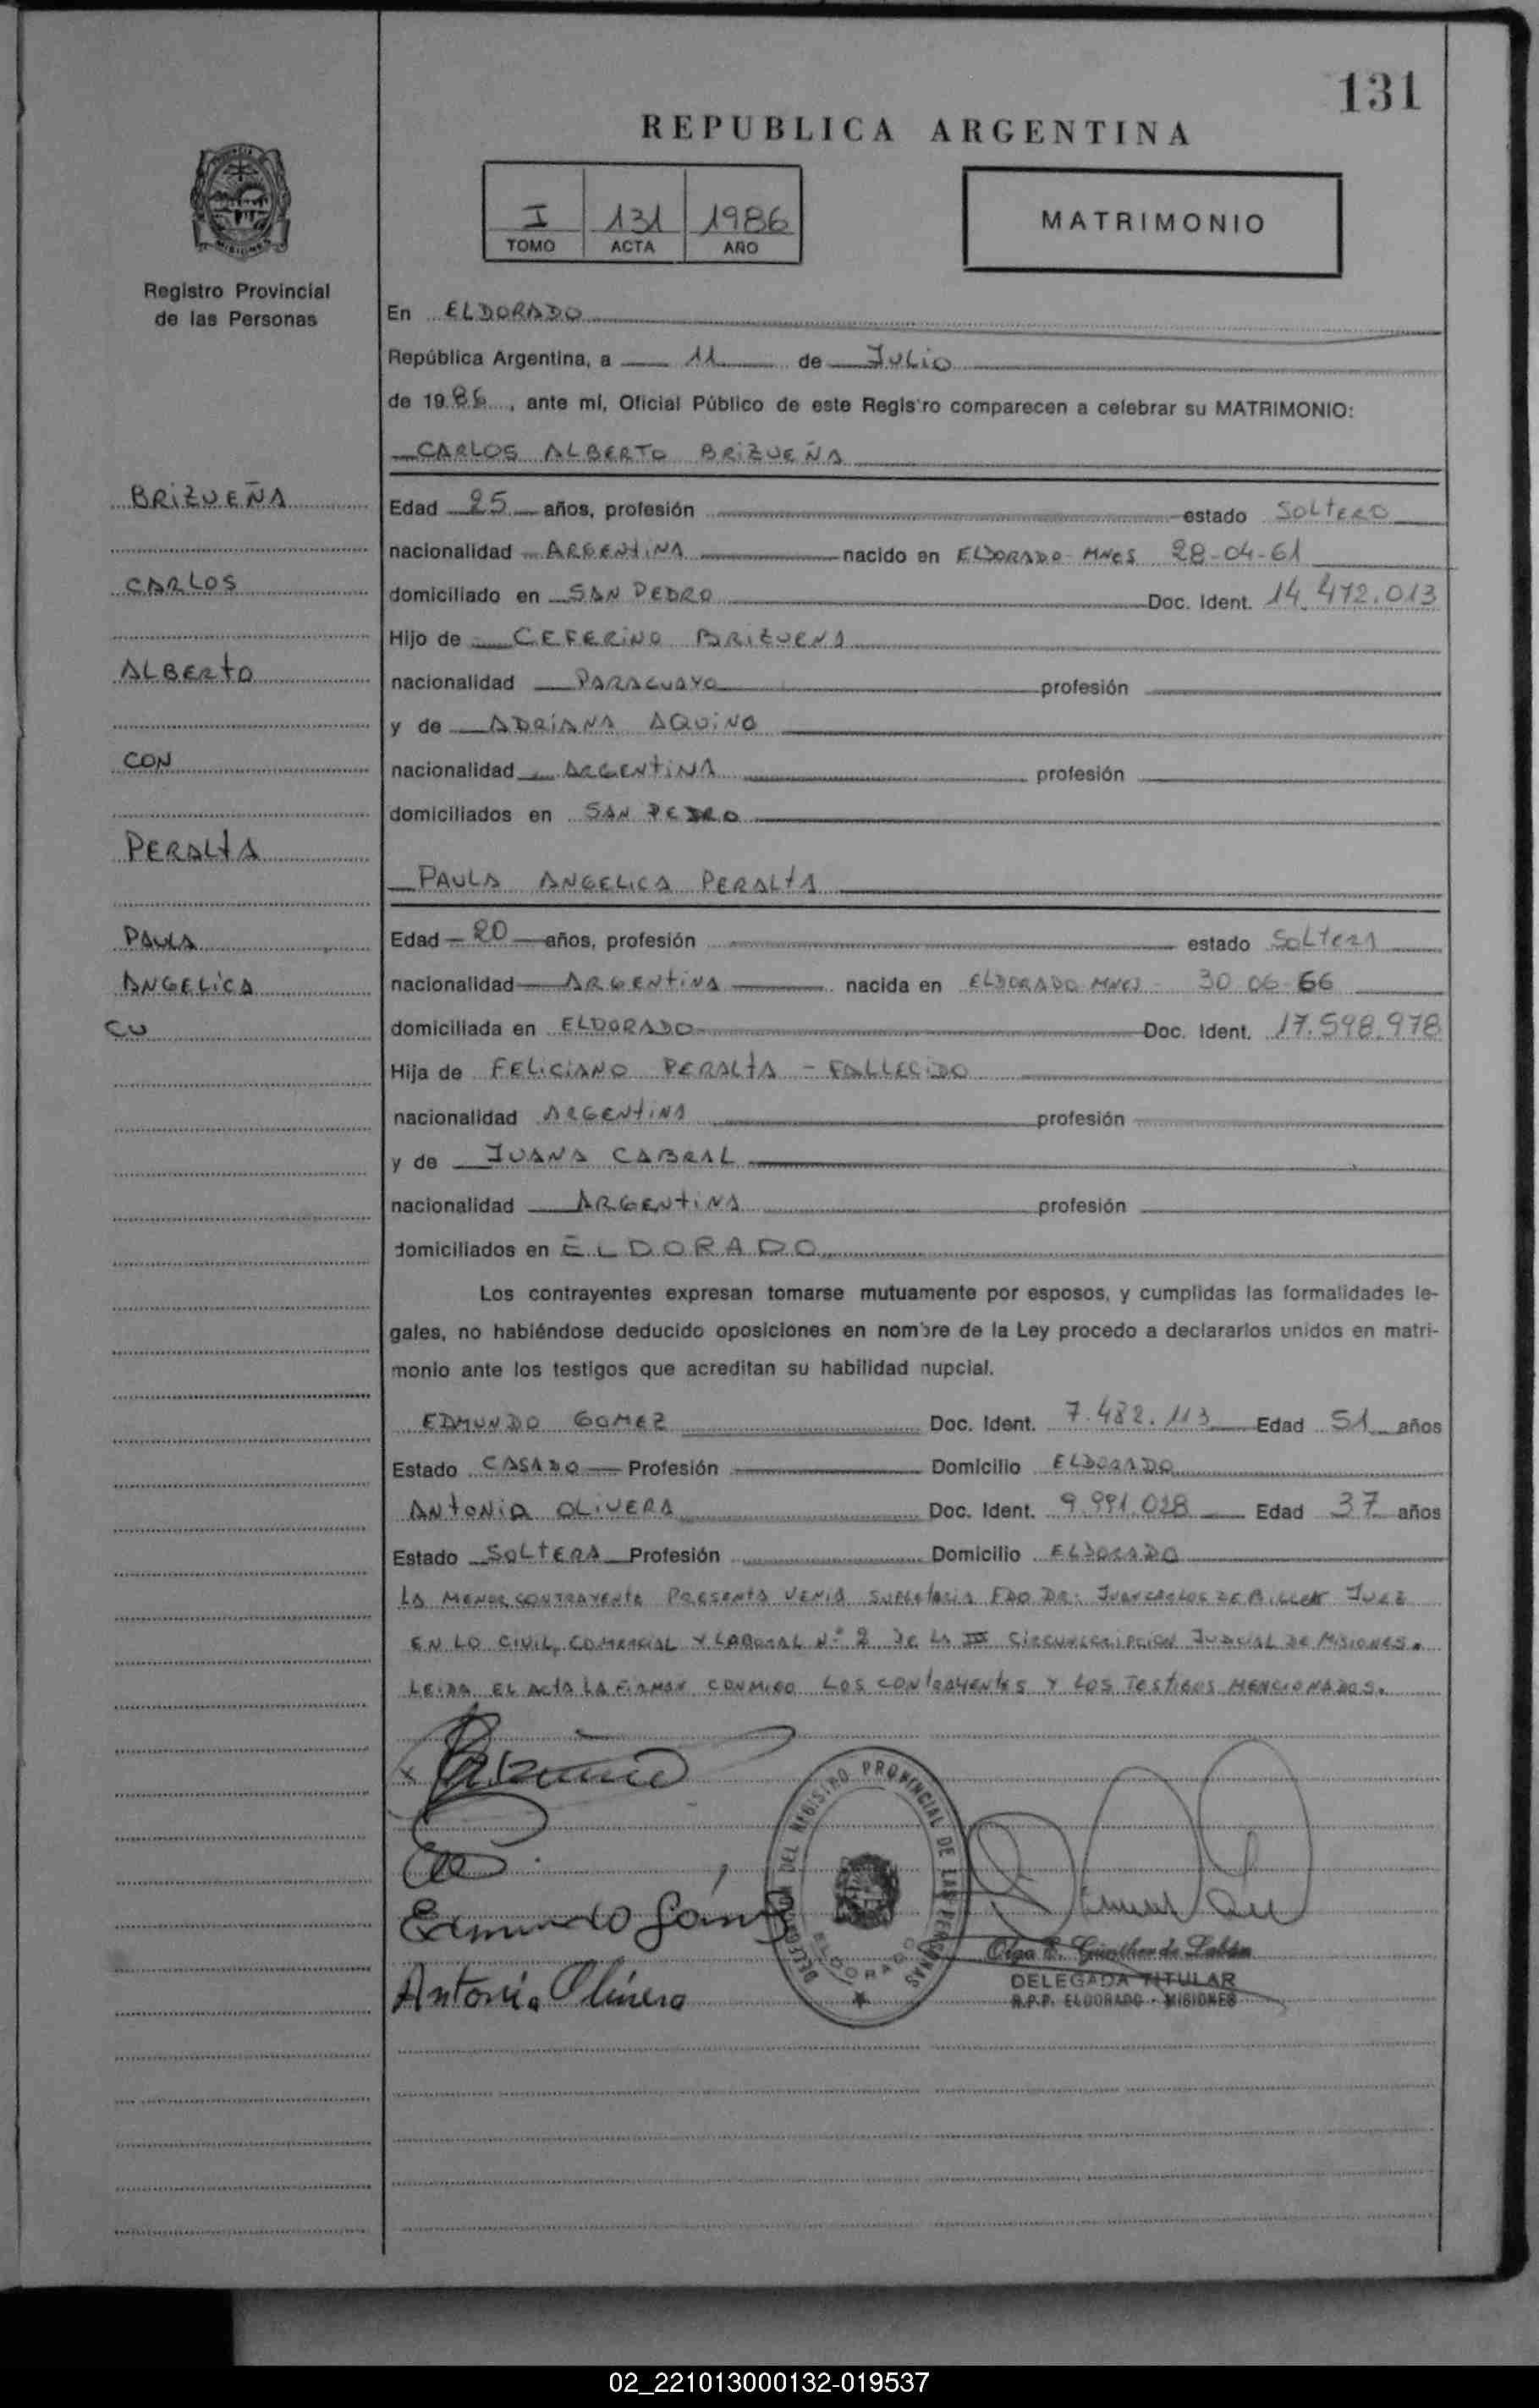 131
REPUBLICA ARGENTINA
I 131 1986
TOMO ACTA AÑO
MATRIMONIO
Registro Provincial
de las Personas
En ELDORADO
República Argentina, a 11 de JULIO
de 1986, ante mí, Oficial Público de este Registro comparecen a celebrar su MATRIMONIO:
CARLOS ALBERTO BRIZUEÑA
BRIZUEÑA
CARLOS
ALBERTO
CON
PERALTA
PAULA
ANGELICA
CU
Edad 25 años, profesión estado SOLTERO
nacionalidad ARGENTINA nacido en ELDORADO MNES 28-04-61
domiciliado en SAN PEDRO Doc. Ident. 14.472.013
Hijo de CEFERINO BRIZUENA
nacionalidad PARAGUAYO profesión
y de ADRIANA AQUINO
nacionalidad ARGENTINA profesión
domiciliados en SAN PEDRO
PAULA ANGELICA PERALTA
Edad 20 años, profesión estado SOLTERA
nacionalidad ARGENTINA nacida en ELDORADO MNES 30 06 66
domiciliada en ELDORADO Doc. Ident. 17.598.978
Hija de FELICIANO PERALTA - FALLECIDO
nacionalidad ARGENTINA profesión
y de JUANA CABRAL
nacionalidad ARGENTINA profesión
domiciliados en ELDORADO
Los contrayentes expresan tomarse mutuamente por esposos, y cumplidas las formalidades le-
gales, no habiéndose deducido oposiciones en nombre de la Ley procedo a declararlos unidos en matri-
monio ante los testigos que acreditan su habilidad nupcial.
EDMUNDO GOMEZ Doc. Ident. 7.482.113 Edad 51 años
Estado CASADO Profesión Domicilio ELDORADO
ANTONIA OLIVERA Doc. Ident. 9.991.028 Edad 37 años
Estado SOLTERA Profesión Domicilio ELDORADO
LA MENOR CONTRAYENTE PRESENTA VENIA SUPLETORIA FDO DR: JUAN CARLOS DE JUEZ
EN LO CIVIL, COMERCIAL Y LABORAL Nº 2 DE LA III CIRCUNSCRIPCION JUDICIAL DE MISIONES.
LEIDA EL ACTA LA FIRMAN CONMIGO LOS CONTRAYENTES Y LOS TESTIGOS MENCIONADOS.
Edmundo Gómez
Antonia Olivera
DELEGACION DEL REGISTRO PROVINCIAL DE LAS PERSONAS
ELDORADO
DELEGADA TITULAR
R.P.P. ELDORADO - MISIONES
02_221013000132-019537